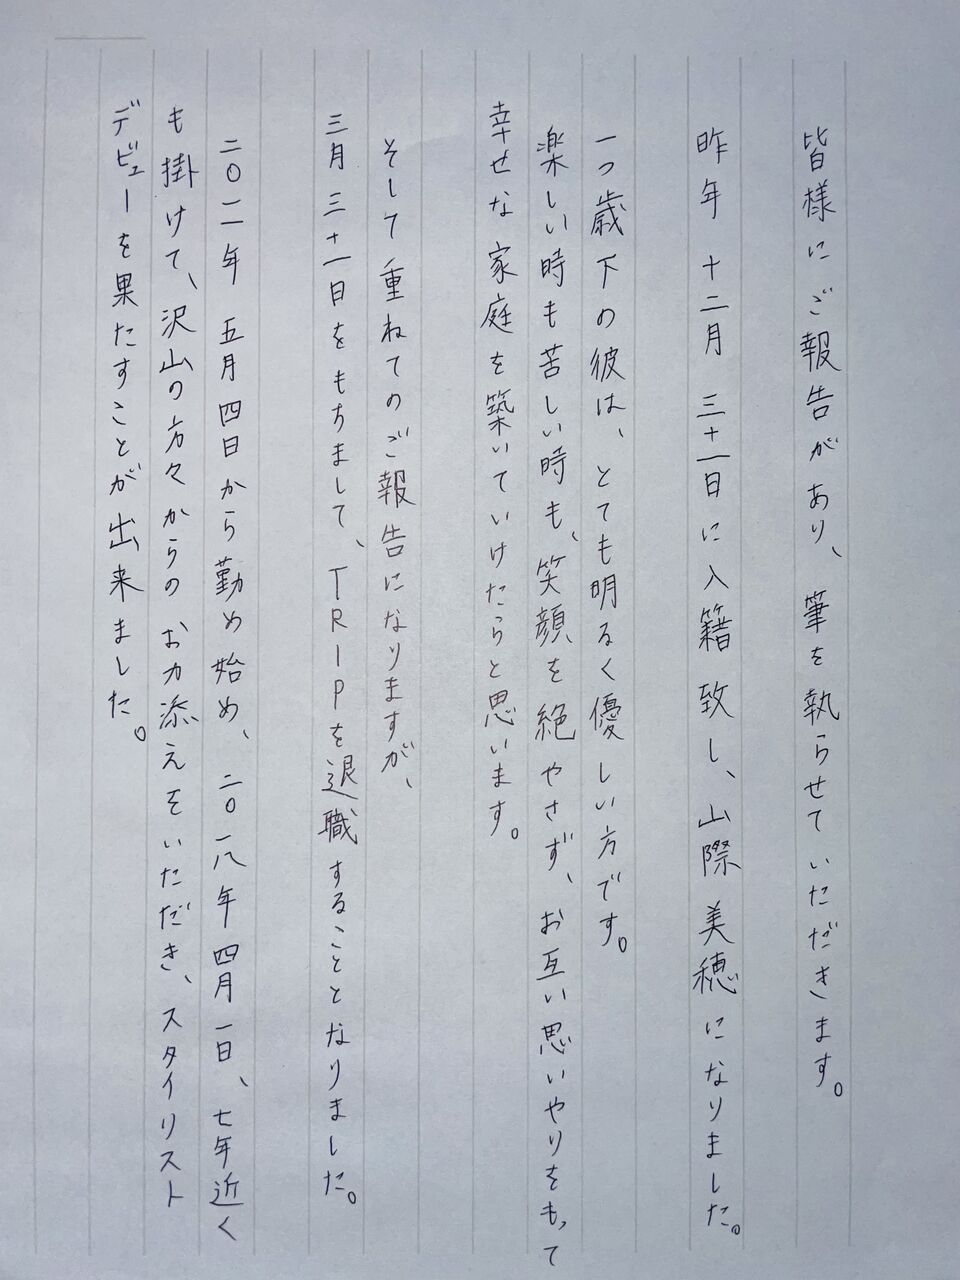 皆様にご報告があり、筆を執らせていただきます。
昨年十二月三十一日に入籍致し、山際美穂になりました。
一つ歳下の彼は、とても明るく優しい方です。
楽しい時も苦しい時も、笑顔を絶やさず、お互い思いやりをもって
幸せな家庭を築いていけたらと思います。
そして重ねてのご報告になりますが、
三月三十一日をもちまして、TRIPを退職することとなりました。
二〇一一年五月四日から勤め始め、二〇一八年四月一日、七年近く
も掛けて、沢山の方々からのお力添えをいただき、スタイリスト
デビューを果たすことが出来ました。